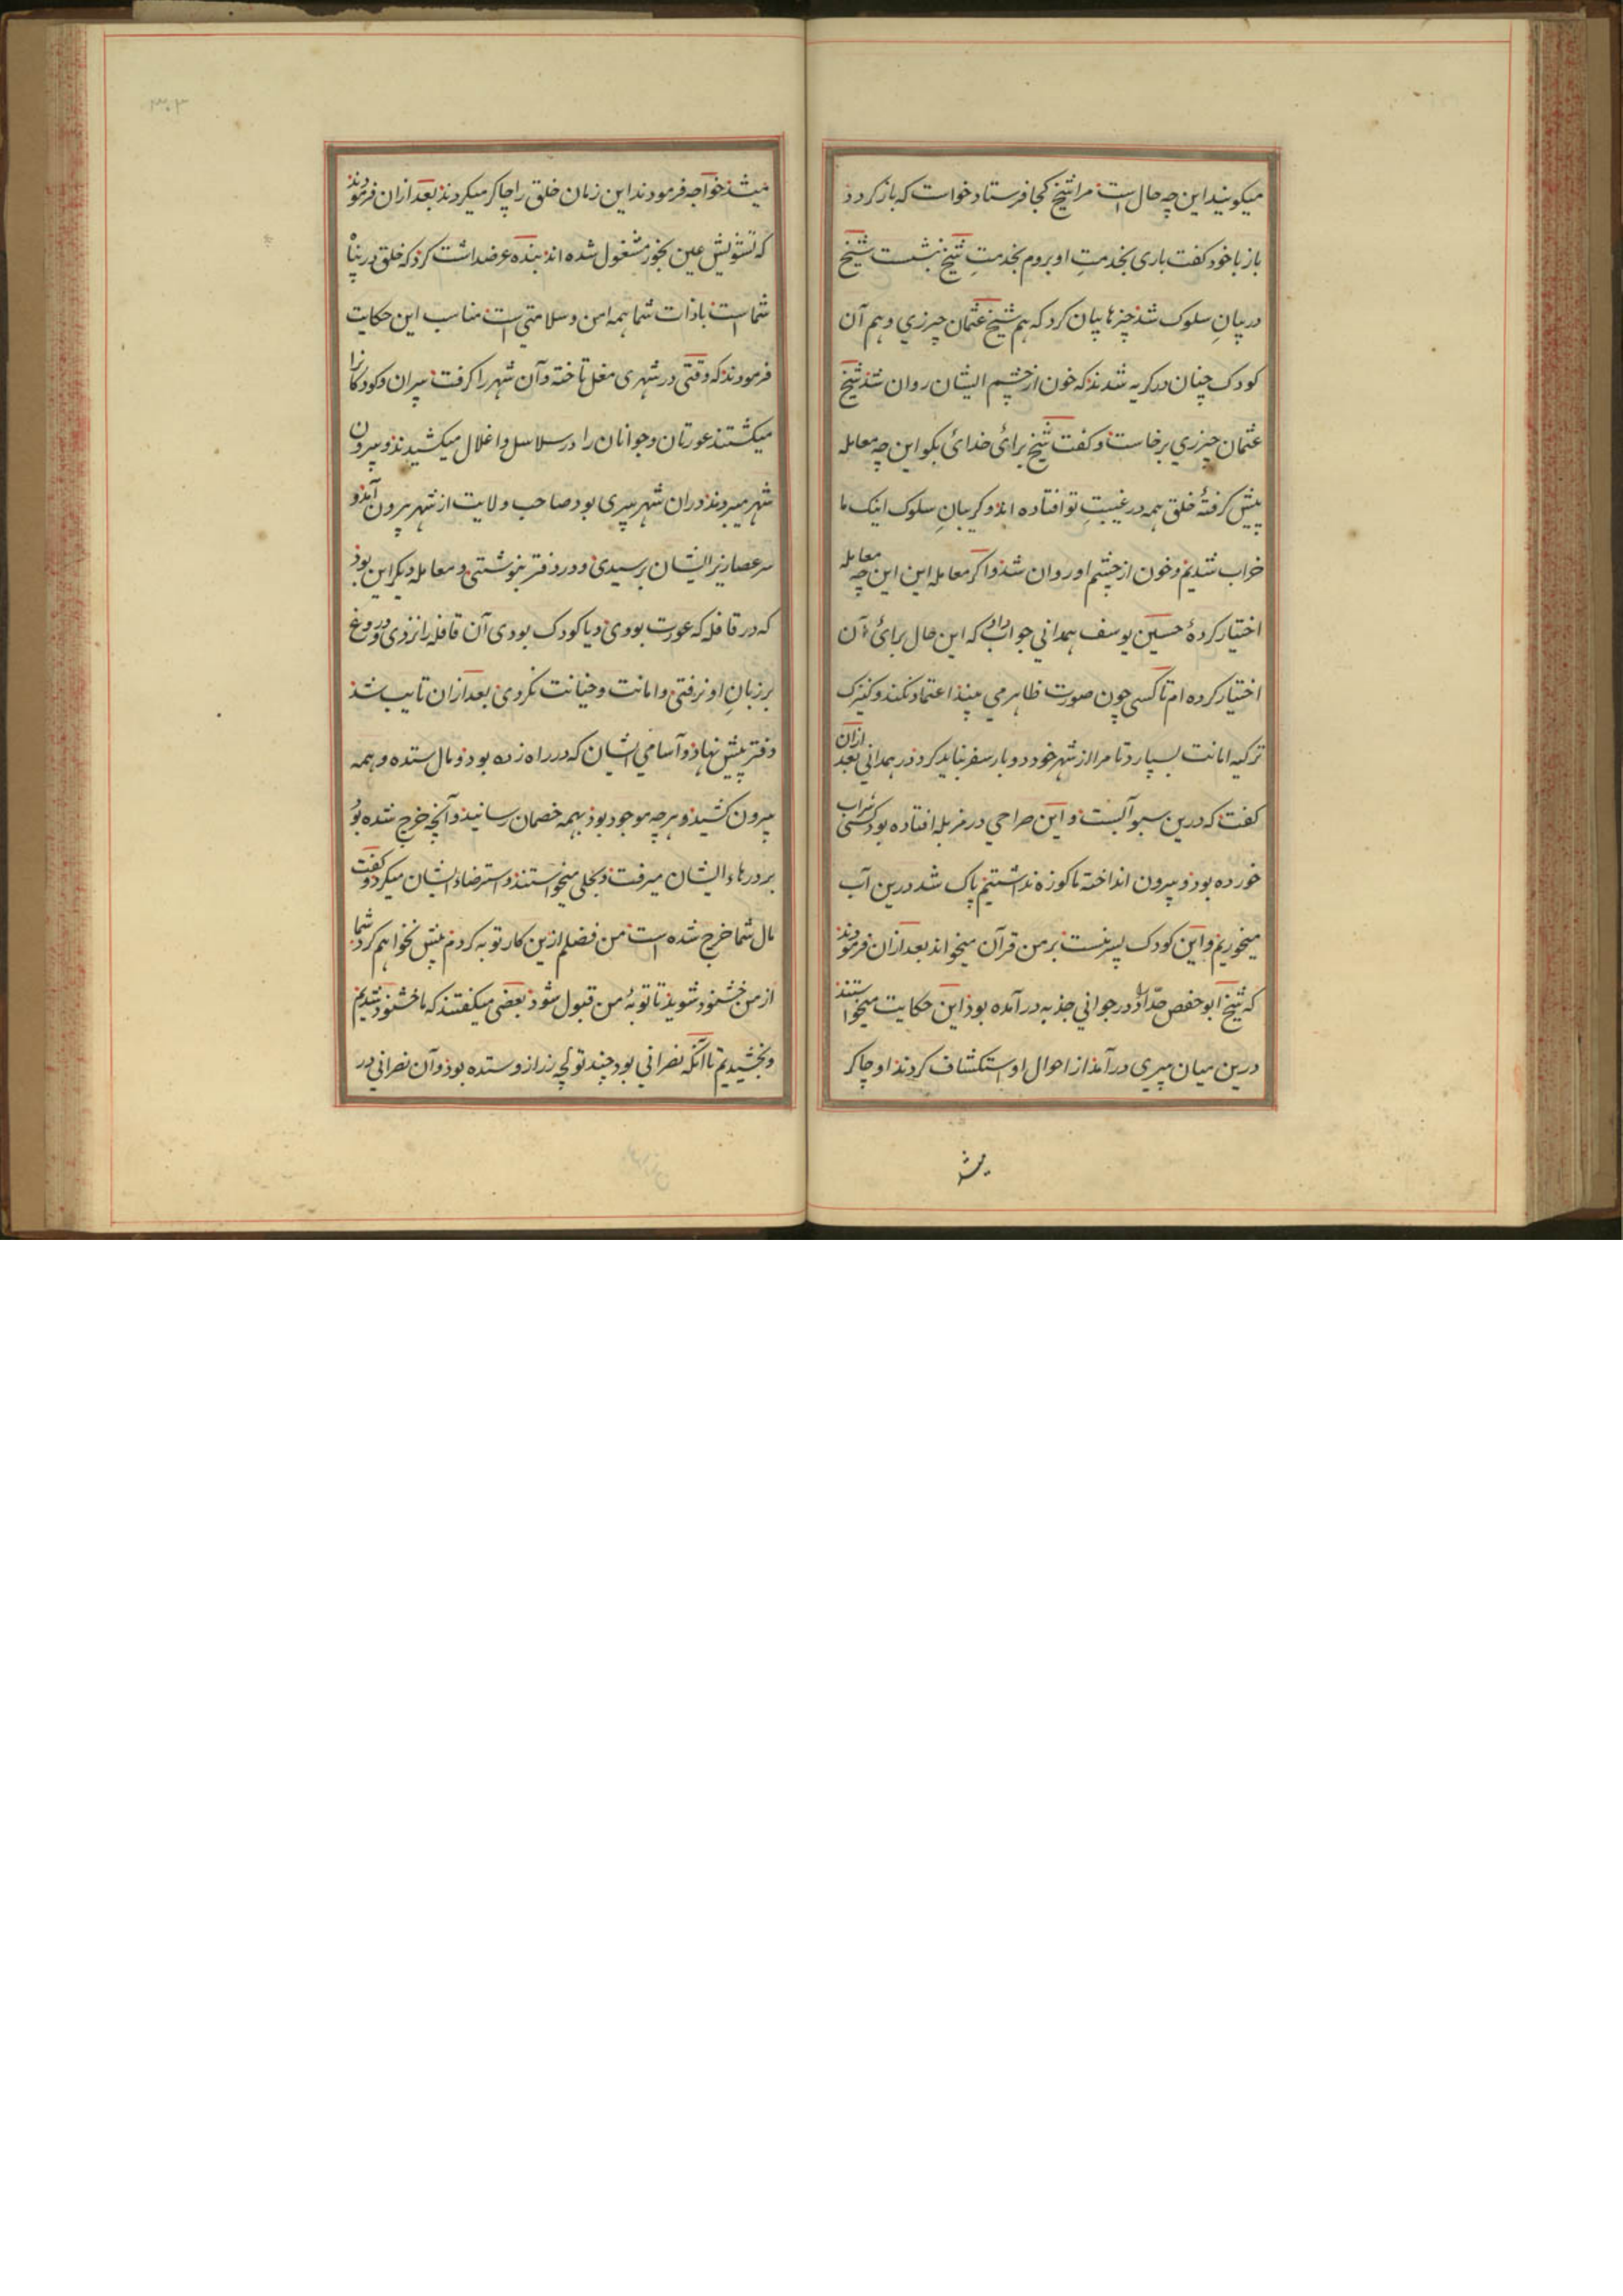 میکویند این چه حال است مرا شیخ کجا فرستاد خواست که باز کردد
باز با خود کفت باری بخدمتِ او بروم بخدمتِ شیخ بنشست شیخ
در بیانِ سلوک شد چیزها بیان کرد که هم شیخ عثمان حیرزی و هم آن
کودک چنان در کریه شدند که خون از چشم ایشان روان شد شیخ
عثمان حیرزی برخاست و کفت شیخ برای خدای بکو این چه معامله
پیش کرفتهٔ خلق همه در غیبتِ تو افتاده اند و کر بیانِ سلوک اینک ما
خراب شدیم و خون از چشم او روان شد و اکر معامله این این چه معامله
اختیار کردهٔ حسین یوسف همدانی جواب داد که این حال برای آن
اختیار کرده ام تا کسی چون صورت ظاهر می بیند اعتماد نکند و کنیزک
ترکیه امانت بسپارد تا مرا از شهر خود دو بار سفر نباید کرد در همدانی بعد ازان
کفت که درین سبو آبست و این صراحی در مزبله افتاده بود کسی شراب
خورده بود و بیرون انداخته ما کوزه نداشتیم پاک شد درین آب
میخوریم و این کودک پسر منست بر من قرآن میخواند بعد ازان فرمودند
که شیخ ابو حفص حدّاد را در جوانی جذبه در آمده بود این حکایت میخواستند
درین میان پیری در آمد از احوال او استکشاف کردند او چاکر
میشد
۳۰۳
میشد خواجه فرمودند این زمان خلق را چاکر میکردند بعد ازان فرمودند
که تشویش عین بخور مشغول شده اند بنده عرضداشت کرد که خلق در پناه
شماست با ذات شما همه امن و سلامتی است مناسب این حکایت
فرمودند که وقتی در شهری مغل تاخته و آن شهر را کرفت پیران و کودکانرا
میکشتند عورتان و جوانان را در سلاسل و اغلال میکشیدند و بیرون
شهر میبردند دران شهر پیری بود صاحب ولایت از شهر بیرون آمد و
سر عصا زیر ایشان برسیدی و در دفتر بنوشتی و معامله دیکر این بود
که در قافله که عورت بودی و یا کودک بودی آن قافله را نزدی و دروغ
بر زبانِ او نرفتی و امانت و خیانت نکردی بعد ازان تایب شد
دفتر پیش نهاد و آسامی ایشان که در راه زده بود و مال ستده و همه
بیرون کشید و هرچه موجود بود بهمه خصمان رسانید و آنچه خرج شده بود
بر درهاء ایشان میرفت و بحلی میخواستند و استرضاء ایشان میکرد و کفت
مال شما خرج شده است من فضلم ازین کار توبه کردم پیش نخواهم کرد شما
از من خشنود شوید تا توبهٔ من قبول شود بعضی میکفتند که ما خشنود شدیم
و بخشیدیم تا آنکه نصرانی بود چند تولچه زر ازو ستده بود و آن نصرانی در